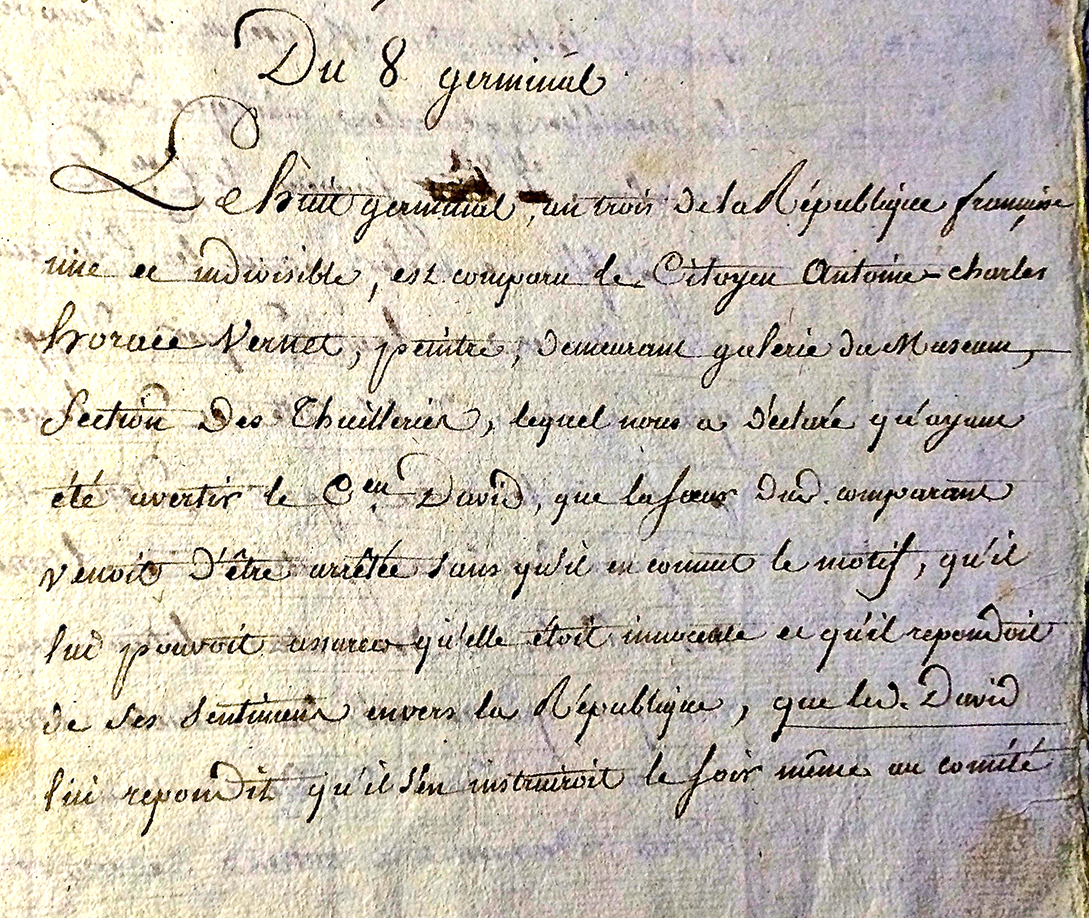 Du 8 germinal
Le huit germinal, an trois de la République française
une et indivisible, est comparu le Citoyen Antoine-charles
horace Vernet, peintre, demeurant galerie du Museum,
Section des Thuilleries, lequel nous a déclaré qu'ayant
été avertir le C.en David, que la sœur dud. comparant
venoit d'être arrêtée sans qu'il en connut le motif, qu'il
lui pouvoit assurer qu'elle étoit innocente et qu'il repondoit
de ses sentimens envers la République, que led. David
lui repondit qu'il s'en instruiroit le soir même au comité